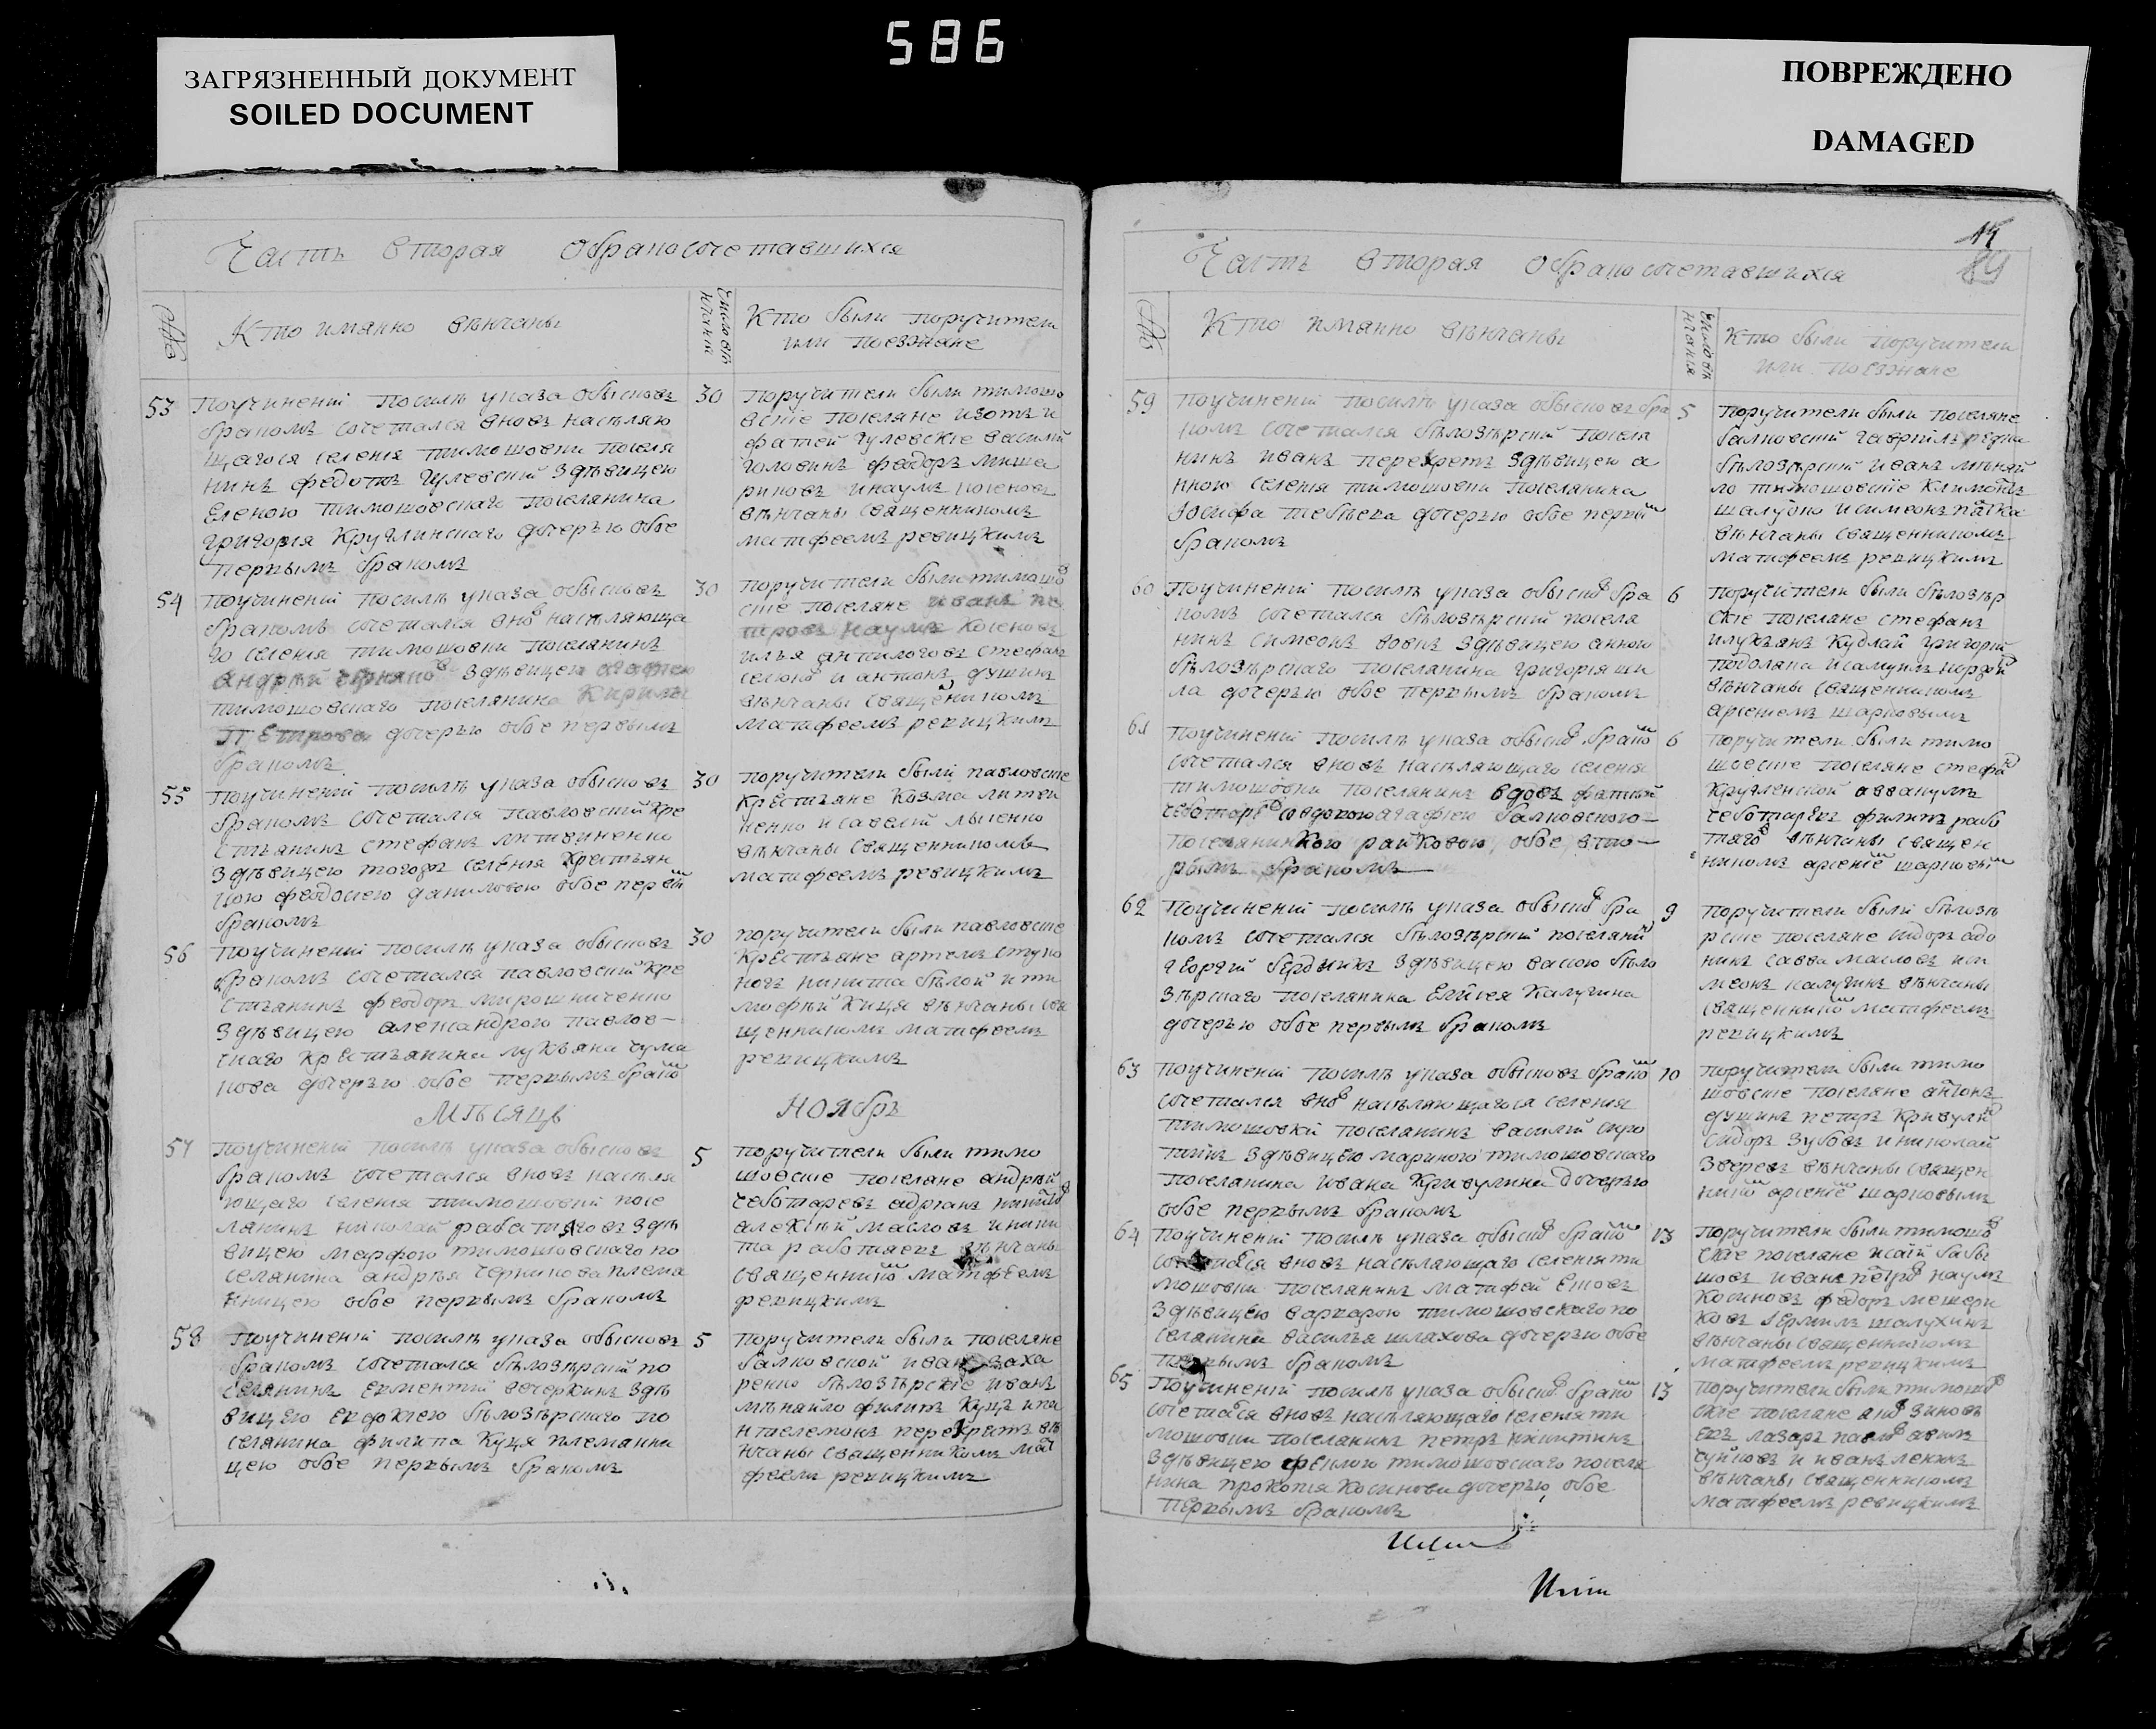 586
ЗАГРЯЗНЕННЫЙ ДОКУМЕНТ
SOILED DOCUMENT
ПОВРЕЖДЕНО
DAMAGED
Часть вторая обракосочетавшихся
№
Кто имянно вѣнчаны
Число вѣнчанія
Кто были поручители
или поезжане
53
поучиненіи посилѣ указа обысковъ
бракомъ сочетался вновь населяю
щагося селенія тимошовки поселя
нинъ федотъ гулевскій здѣвицею
Еленою тимошовскаго поселянина
григорія Круглинскаго дочерью обое
первымъ бракомъ
30
поручители были тимошо
вскіе поселяне изотъ и
фатей гулевскіе василій
головинъ феодоръ миша
риновъ инаумъ
вѣнчаны священникомъ
матфеемъ ревицкимъ
54
поучиненіи посилѣ указа обысковъ
бракомъ сочетался вновъ населяюща
го селенія тимошовки поселянинъ
андрѣй здѣвицею
тимошовскаго поселянина Кирилы
Петрова дочерью обое первымъ
бракомъ
30
поручители были тимошов
скіе поселяне иванъ пе
тровъ наумъ
илья стефанъ
и антонъ душинъ
вѣнчаны священикомъ
матфеемъ ревицкимъ
55
поучиненіи посилѣ указа обысковъ
бракомъ сочетался павловскій кре
стьянинъ стефанъ литвиненко
здѣвицею тогожъ селенія крестьян
кою феодосіею даниловою обое первым
бракомъ
30
поручители были павловскіе
Крестьяне Козма литви
ненко исавелій лысенко
вѣнчаны священникомъ
матфеемъ ревицкимъ
56
поучиненіи посилѣ указа обысковъ
бракомъ сочетался павловскій кре
стьянинъ феодоръ мирошниченко
здѣвицею александрою павлов–
скаго крестьянина лукъяна чума
кова дочерью обое первымъ браком
30
поручители были павловскіе
Крестьяне артемъ
никита бѣлой ити
мофѣй Куця вѣнчаны свя
щенникомъ матфеемъ
ревицкимъ
мѣсяцъ ноябрь
57
поучиненіи посилѣ указа обысковъ
бракомъ сочетался вновъ населя
ющаго селенія тимошовки посе
лянинъ николай работяговъ здѣ
вицею марфою тимошовскаго по
селянина андрѣя черникова племя
нницею обое первымъ бракомъ
5
поручители были тимо
шовскіе поселяне андрѣй
чеботаревъ адріанъ
алексѣй масловъ иники
та вѣнчаны
священником матфеемъ
ревицкимъ
58
поучиненіи посилѣ указа обысковъ
бракомъ сочетался бѣлозѣрскій по
селянинъ вечеркинъ здѣ
вицею евфокіею бѣлозѣрскаго по
селянина филипа Куця племянни
цею обое первымъ бракомъ
5
поручители были поселяне
балковской иванъ заха
ренко бѣлозѣрскіе иванъ
мѣняйло филипъ куць ипа
нтелемонъ перехрестъ вѣ
нчаны священникомъ мат
феемъ ревицкимъ
Часть вторая обракосочетавшихся
89
№
Кто имянно вѣнчаны
Число вѣнчанія
Кто были поручители
или поезжане
59
поучиненіи посилѣ указа обысковъ бра
комъ сочетался бѣлозѣрскій поселя
нинъ иванъ перехрестъ здѣвицею а
нною селенія тимошовки поселянина
Іосифа дочерью обое первым
бракомъ
5
поручители были поселяне
балковскій гавріилъ
бѣлозѣрскій иванъ мѣняй
ло тимошовскіе Климентъ
исимеонъ
вѣнчаны священникомъ
матфеемъ ревицкимъ
60
поучиненіи посилѣ указа обысков бра
комъ сочетался бѣлозѣрскій поселя
нинъ симеонъ вовкъ здѣвицею анною
бѣлозѣрскаго поселянина григорія ши
ла дочерью обое первымъ бракомъ
6
поручители были бѣлозѣр
скіе поселяне стефанъ
илукьянъ Кудлай григорій
подоляка исамуилъ
вѣнчаны священникомъ
арсеніемъ шарковымъ
61
поучиненіи посилѣ указа обысков браком
сочетался вновь населяющаго селенія
тимошовки поселянинъ вдовъ фатѣй
совдовою агафіею балковского–
поселянинкою райковою обое вто–
рымъ бракомъ
6
поручители были тимо
шовскіе поселяне стефан
Круглинской аввакумъ
чеботаревъ филипъ рабо
тягов вѣнчаны священ
никомъ арсеніем шарковым
62
поучиненіи посилѣ указа обысков бра
комъ сочетался бѣлозѣрскій поселянин
георгій бердникъ здѣвицею бѣло
зѣрскаго поселянина Елисея Калугина
дочерью обое первымъ бракомъ
9
поручители были бѣлозѣ
рскіе поселяне сидоръ адо
нинъ савва масловъ иси
меонъ калугинъ вѣнчаны
священником матфеемъ
ревицкимъ
63
поучиненіи посилѣ указа обысковъ браком
сочетался внов населяющагося селенія
тимошовки поселянинъ василій сиро
тинъ здѣвицею мариною тимошовскаго
поселянина ивана Кривулина дочерью
обое первымъ бракомъ
10
поручители были тимо
шовскіе поселяне антонъ
душинъ петръ кривулин
сидоръ зубовъ иниколай
зверевъ вѣнчаны священ
ником арсеніем шарковымъ
64
поучиненіи посилѣ указа обысков браком
сочетался вновъ населяющаго селенія ти
мошовки поселянинъ матфей
здѣвицею варварою тимошовскаго по
селянина василья шляхова дочерью обое
первымъ бракомъ
13
поручители были тимошов
скіе поселяне исаій бабы
шовъ иванъ петров наумъ
Косиновъ федоръ мещеря
ковъ іермилъ шалухинъ
вѣнчаны священникомъ
матфеемъ ревицкимъ
65
поучиненіи посилѣ указа обысков браком
сочетался вновъ населяющаго селенія ти
мошовки поселянинъ петръ никитинъ
здѣвицею феклою тимошовскаго поселя
нина прокопія Косинова дочерью обое
первымъ бракомъ
13
поручители были тимошов
скіе поселяне зиновь
евъ лазарь павлов
и иванъ
вѣнчаны священникомъ
матфеемъ ревицкимъ